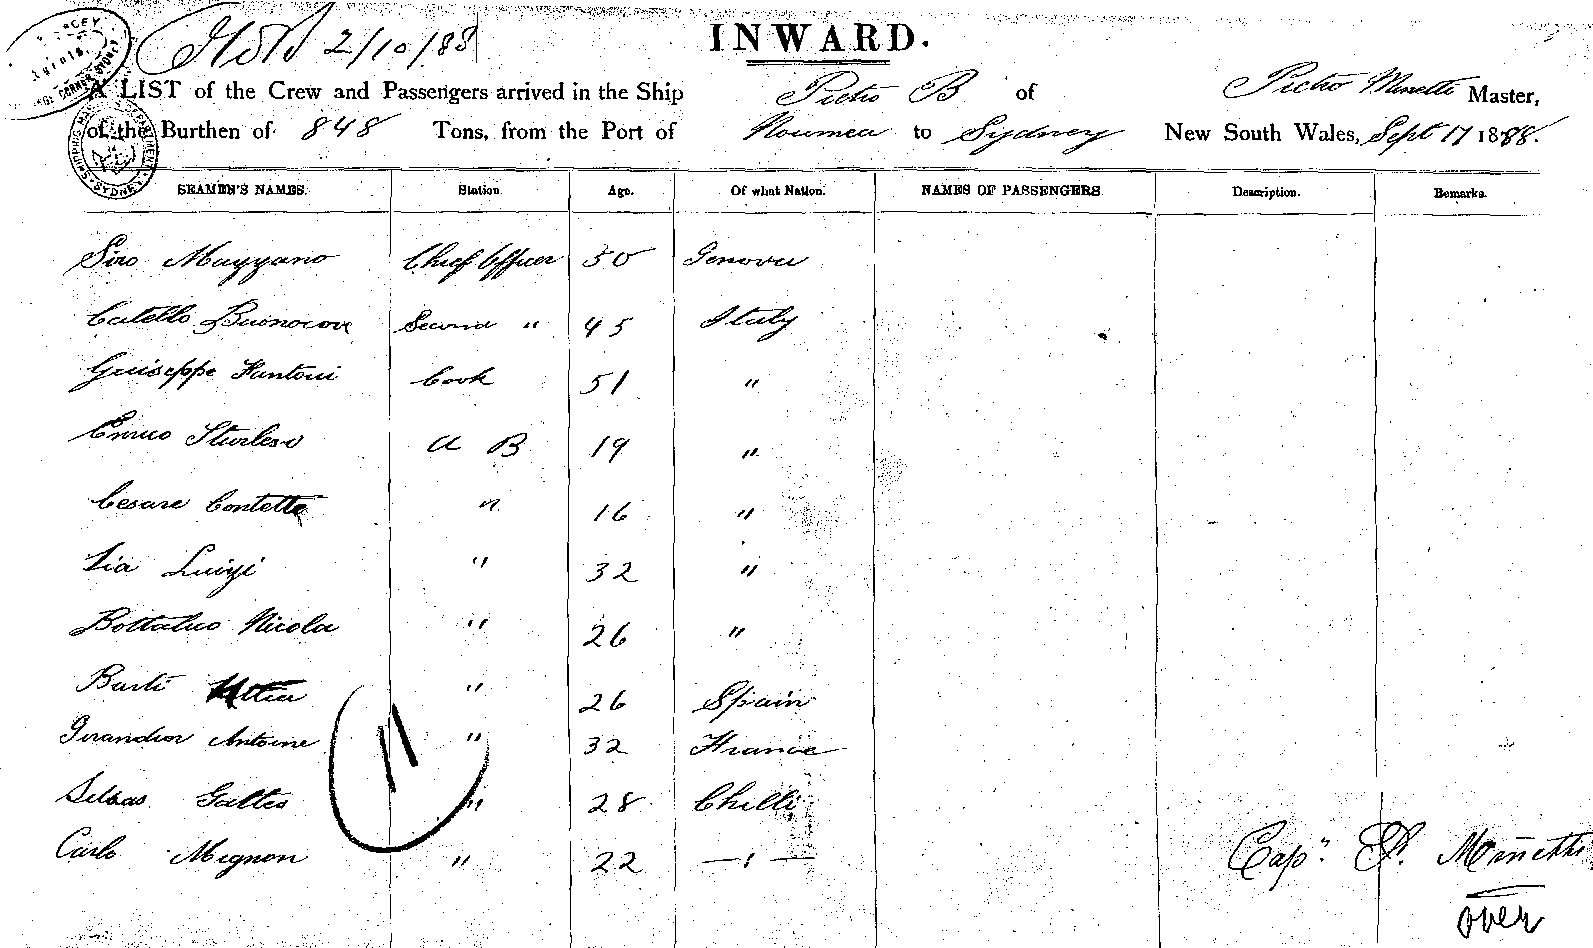 2/10/88
INWARD.
A LIST of the Crew and Passengers arrived in the Ship Pietro B of Pietro Minetti Master,
of the Burthen of 848 Tons, from the Port of Noumea to Sydney New South Wales, Sept 17 1888.
SEAMEN'S NAMES. Station. Age. Of what Nation. NAMES OF PASSENGERS. Description. Remarks.
Siro Mazzano Chief Officer 50 Genova
Catello Buonocore Second " 45 Italy
Guiseppe Fantoni Cook 51 "
Enrico Sturleso A B 19 "
Cesare Contette " 16 "
Lia Luigi " 32 "
Bottaluo Nicola " 26 "
Barti " 26 Spain
Girandior Antoine " 32 France
Selbas Galtes " 28 Chilli
Carlo Mignon " 22 — " —
11
Capn. P. Minetti
over
SYDNEY